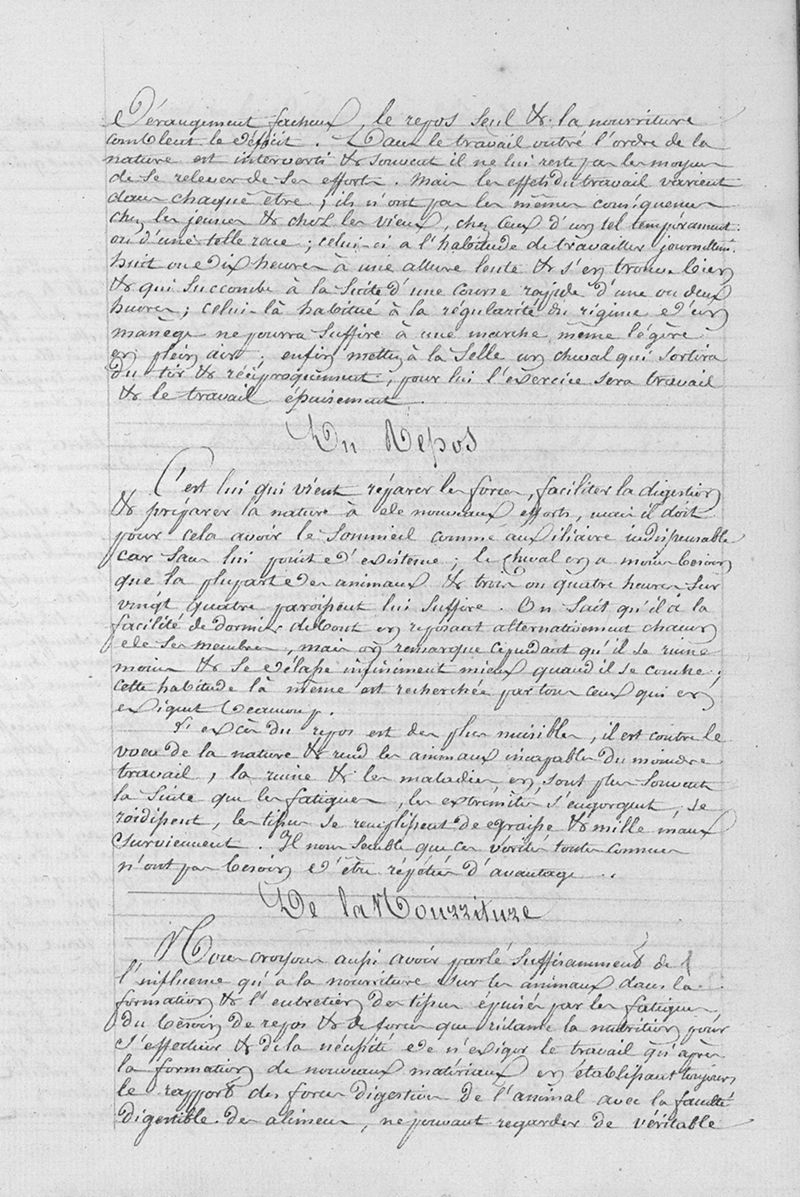 Dérangement facheux, le repos seul & la nourriture
comblent le déficit. Dans le travail outré l'ordre de la
nature est interverti & souvent il ne lui reste pas les moyens
de se relever de ses efforts. Mais les effets du travail varient
dans chaque être ; ils n'ont pas les mêmes conséquences
chez les jeunes & chez les vieux, chez ceux d'un tel tempérament
ou d'une telle race ; celui-ci a l'habitude de travailler journellem.
huit ou dix heures à une allure lente & s'en trouve bien
& qui succombe à la suite d'une course rapide d'une ou deux
heures ; celui-là habitué à la régularité du régime d'un
manège ne pourra suffire à une marche même légère
en plein air ; enfin mettez à la selle un cheval qui sortira
du tir & réciproquement, pour lui l'exercice sera travail
& le travail épuisement.
Du Répos
C'est lui qui vient réparer les forces, faciliter la digestion
& préparer la nature à de nouveaux efforts, mais il doit
pour cela avoir le sommeil comme auxiliaire indispensable
car sans lui point d'existence ; le cheval en a moins besoin
que la plupart des animaux & trois ou quatre heures sur
vingt quatre paroissent lui suffire. On sait qu'il à la
facilité de dormir debout en reposant alternativement chacun
de ses membres, mais on remarque cependant qu'il se ruine
moins & se délasse infiniment mieux quand il se couche ;
cette habitude là même est recherchée par tous ceux qui en
exigent beaucoup.
L'excès du repos est des plus nuisibles, il est contre le
voeu de la nature & rend les animaux incapables du moindre
travail, la ruine & les maladies en sont plus souvent
la suite que les fatigues, les extrémités s'engorgent, se
roidissent, les tissus se remplissent de graisse & mille maux
surviennent. Il nous semble que ces vérités toutes connues
n'ont pas besoin d'être répétées d'avantage.
De la Nourriture
Nous croyons aussi avoir parlé suffisamment de
l'influence qu'a la nourriture sur les animaux dans la
formation & l'entretien des tissus épuisés par les fatigues,
du besoin de repos & de forces que réclame la nutrition pour
s'effectuer & de la nécessité de n'exiger le travail qu'après
la formation de nouveaux matériaux en établissant toujours
le rapport des forces digestion de l'animal avec la faculté
digestible des alimens, ne pouvant regarder de véritable